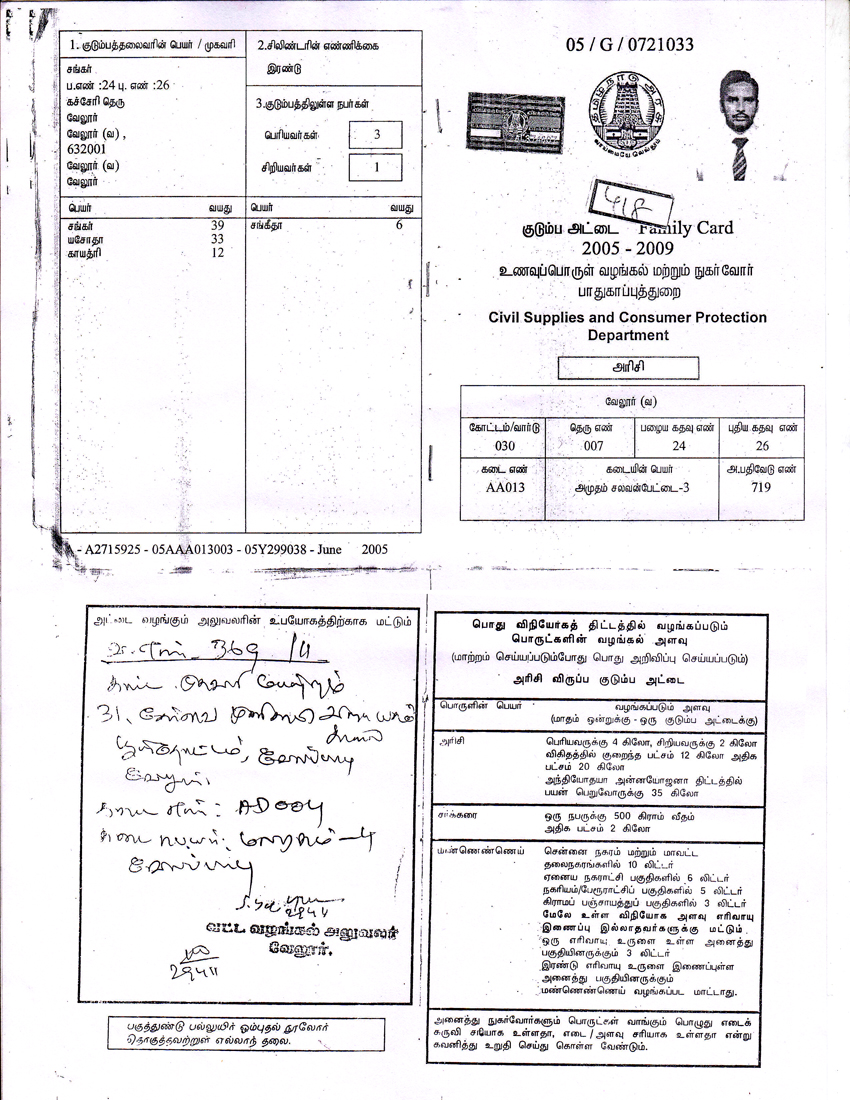 1. குடும்பத்தலைவரின் பெயர் / முகவரி
சங்கர்
ப.எண் :24 பு. எண் :26
கச்சேரி தெரு
வேலூர்
வேலூர் (வ) ,
632001
வேலூர் (வ)
வேலூர்
2.சிலிண்டரின் எண்ணிக்கை
இரண்டு
3.குடும்பத்திலுள்ள நபர்கள்
பெரியவர்கள் 3
சிறியவர்கள் 1
பெயர் வயது பெயர் வயது
சங்கர் 39 சங்கீதா 6
யசோதா 33
காயத்ரி 12
A - A2715925 - 05AAA013003 - 05Y299038 - June 2005
05 / G / 0721033
தமிழ்நாடு அரசு
வாய்மையே வெல்லும்
418
குடும்ப அட்டை Family Card
2005 - 2009
உணவுப்பொருள் வழங்கல் மற்றும் நுகர்வோர்
பாதுகாப்புத்துறை
Civil Supplies and Consumer Protection
Department
அரிசி
வேலூர் (வ)
கோட்டம்/வார்டு தெரு எண் பழைய கதவு எண் புதிய கதவு எண்
030 007 24 26
கடை எண் கடையின் பெயர் அ.பதிவேடு எண்
AA013 அமுதம் சலவன்பேட்டை-3 719
அட்டை வழங்கும் அலுவலரின் உபயோகத்திற்காக மட்டும்
369 /11
31,
AD004
29411
வட்ட வழங்கல் அலுவலர்
வேலூர்.
29411
பகுத்துண்டு பல்லுயிர் ஓம்புதல் நூலோர்
தொகுத்தவற்றுள் எல்லாந் தலை.
பொது விநியோகத் திட்டத்தில் வழங்கப்படும்
பொருட்களின் வழங்கல் அளவு
(மாற்றம் செய்யப்படும்போது பொது அறிவிப்பு செய்யப்படும்)
அரிசி விருப்ப குடும்ப அட்டை
பொருளின் பெயர் வழங்கப்படும் அளவு
(மாதம் ஒன்றுக்கு - ஒரு குடும்ப அட்டைக்கு)
அரிசி பெரியவருக்கு 4 கிலோ, சிறியவருக்கு 2 கிலோ
விகிதத்தில் குறைந்த பட்சம் 12 கிலோ அதிக
பட்சம் 20 கிலோ
அந்தியோதயா அன்னயோஜனா திட்டத்தில்
பயன் பெறுவோருக்கு 35 கிலோ
சர்க்கரை ஒரு நபருக்கு 500 கிராம் வீதம்
அதிக பட்சம் 2 கிலோ
மண்ணெண்ணெய் சென்னை நகரம் மற்றும் மாவட்ட
தலைநகரங்களில் 10 லிட்டர்
ஏனைய நகராட்சி பகுதிகளில் 6 லிட்டர்
நகரியம்/பேரூராட்சிப் பகுதிகளில் 5 லிட்டர்
கிராமப் பஞ்சாயத்துப் பகுதிகளில் 3 லிட்டர்
மேலே உள்ள விநியோக அளவு எரிவாயு
இணைப்பு இல்லாதவர்களுக்கு மட்டும்.
ஒரு எரிவாயு உருளை உள்ள அனைத்து
பகுதியினருக்கும் 3 லிட்டர்
இரண்டு எரிவாயு உருளை இணைப்புள்ள
அனைத்து பகுதியினருக்கும்
மண்ணெண்ணெய் வழங்கப்பட மாட்டாது.
அனைத்து நுகர்வோர்களும் பொருட்கள் வாங்கும் பொழுது எடைக்
கருவி சரியாக உள்ளதா, எடை / அளவு சரியாக உள்ளதா என்று
கவனித்து உறுதி செய்து கொள்ள வேண்டும்.